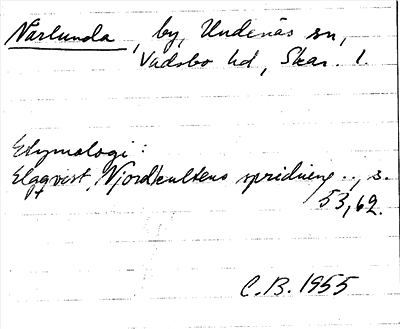 Närlunda, by, Undenäs sn,
Vadsbo hd, Skar. l.
Etymologi:
Elgqvist, Njordkultens spridning .., s.
53, 62.
C.B. 1955